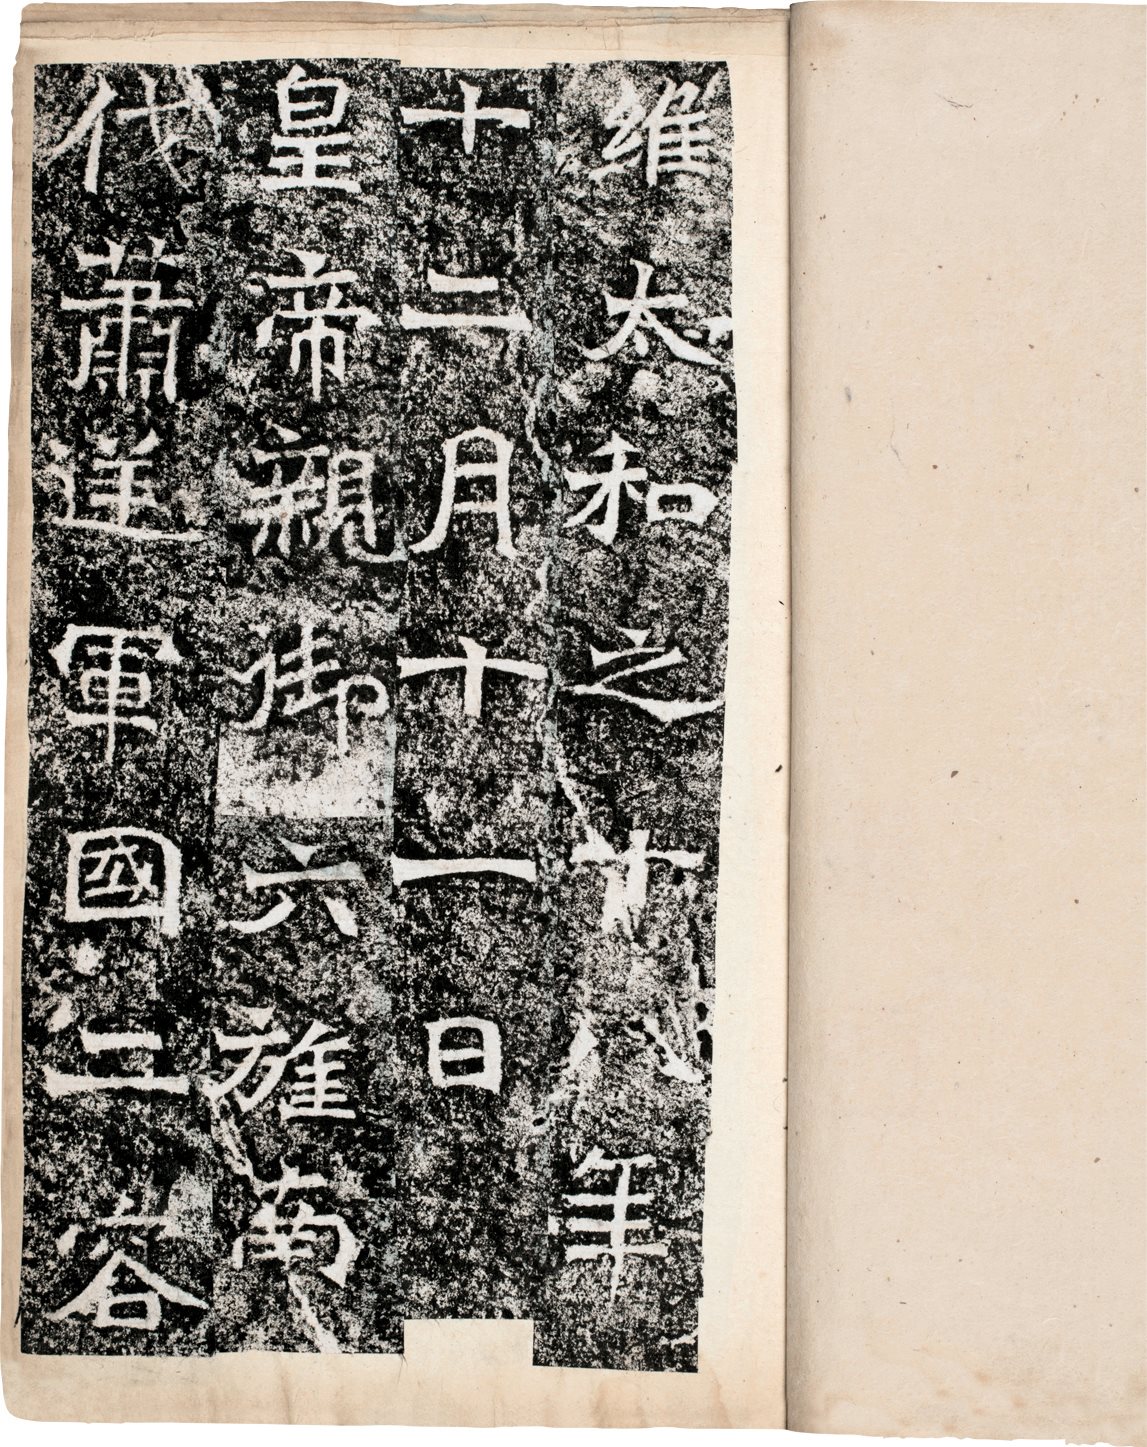 維太和之十八年
十二月十一日
皇帝親御六旌南
代蕭逆軍國二容